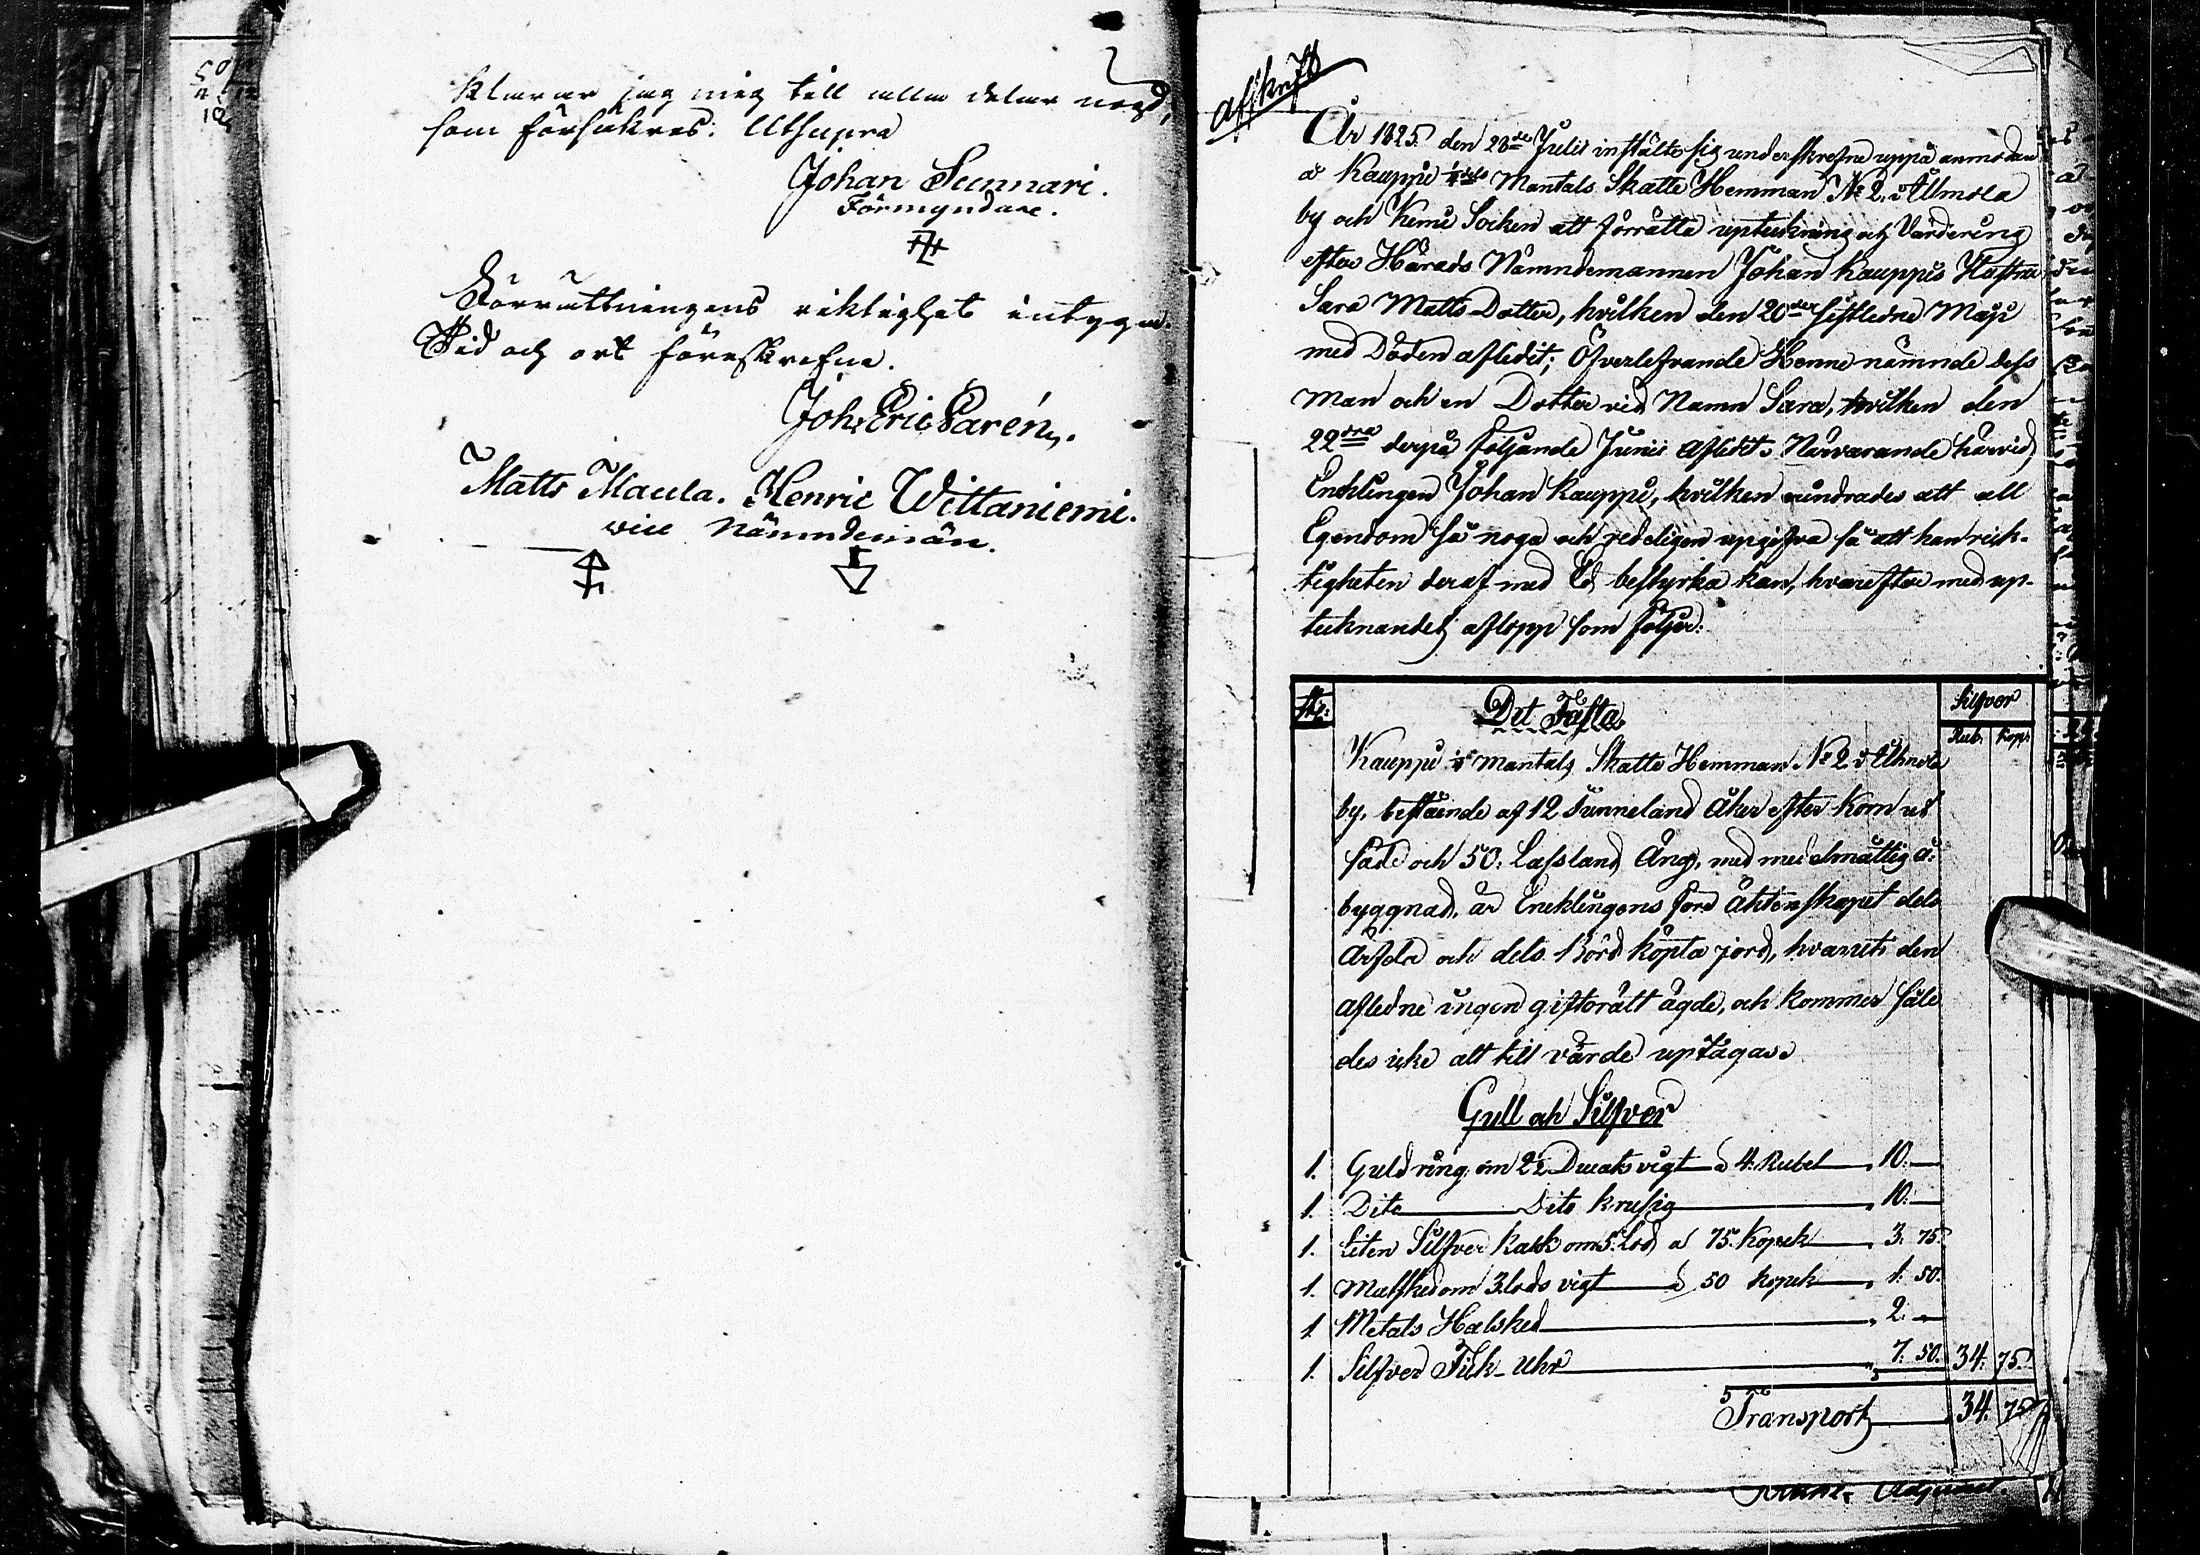 klarar jag mig till alla delar nögd,
som försäkras. Utsupra
Johan Sunnari.
Förmyndare.
Förrättningens riktighet intygar.
Tid och ort föreskrefne.
Joh. Eric Parén.
Matts Maula. Henric Wittaniemi.
vice Nämndemän.
Afskrift
År 1825. den 28de Julii instälte sig underskrefne uppå anmodan
å Kauppi Mantals Skatte Hemman No 2. i Allmola
by och Kemi Socken att förrätta upteckning och Värdering
efter Härads Nämndemannen Johan Kauppis Hustru
Sara Matts Dotter, hvilken den 20de sistledne Maji
med Döden afledit; Öfverlefvande Henne nämnde dess
Man och en Dotter vid Namn Sara, hvilken den
22dra derpå följande Junii afledit. Närvarande härvid,
Encklingen Johan Kauppi, hvilken erindrades att all
Egendom så noga och redeligen upgifva så att han rick-
tigheten deraf med Ed bestyrka kan, hvarefter med up-
tecknandet aflopp som följer:
No: Det Fasta Silfver
Rub. Kop:
Kauppi Mantals Skatte Hemman No 2 i Allmola
by, bestående af 12 Tunneland Åker efter Korn ut
säde och 50. Lassland Äng, med medelmåttig å:
byggnad, är Encklingens före äktenskapet dels
Ärfda och dels Börd köpta jord, hvaruti den
Afledne ingen giftorätt ägde, och kommer såle
des icke att till värde uptagas.
Gull och Silfver
1. Guldring om 2½ Ducats vigt à 4. Rubel 10. —
1. Dito Dito krusig 10. —
1. Liten Silfver Kalk om 5. Lod à 75. Kopek 3. 75.
1. Matsked om 3. lods vigt à 50 kopek 1. 50.
1 Metals Halsked 2. —
1. Silfver Fick-Uhr 7. 50. 34. 75.
Transport 34. 75